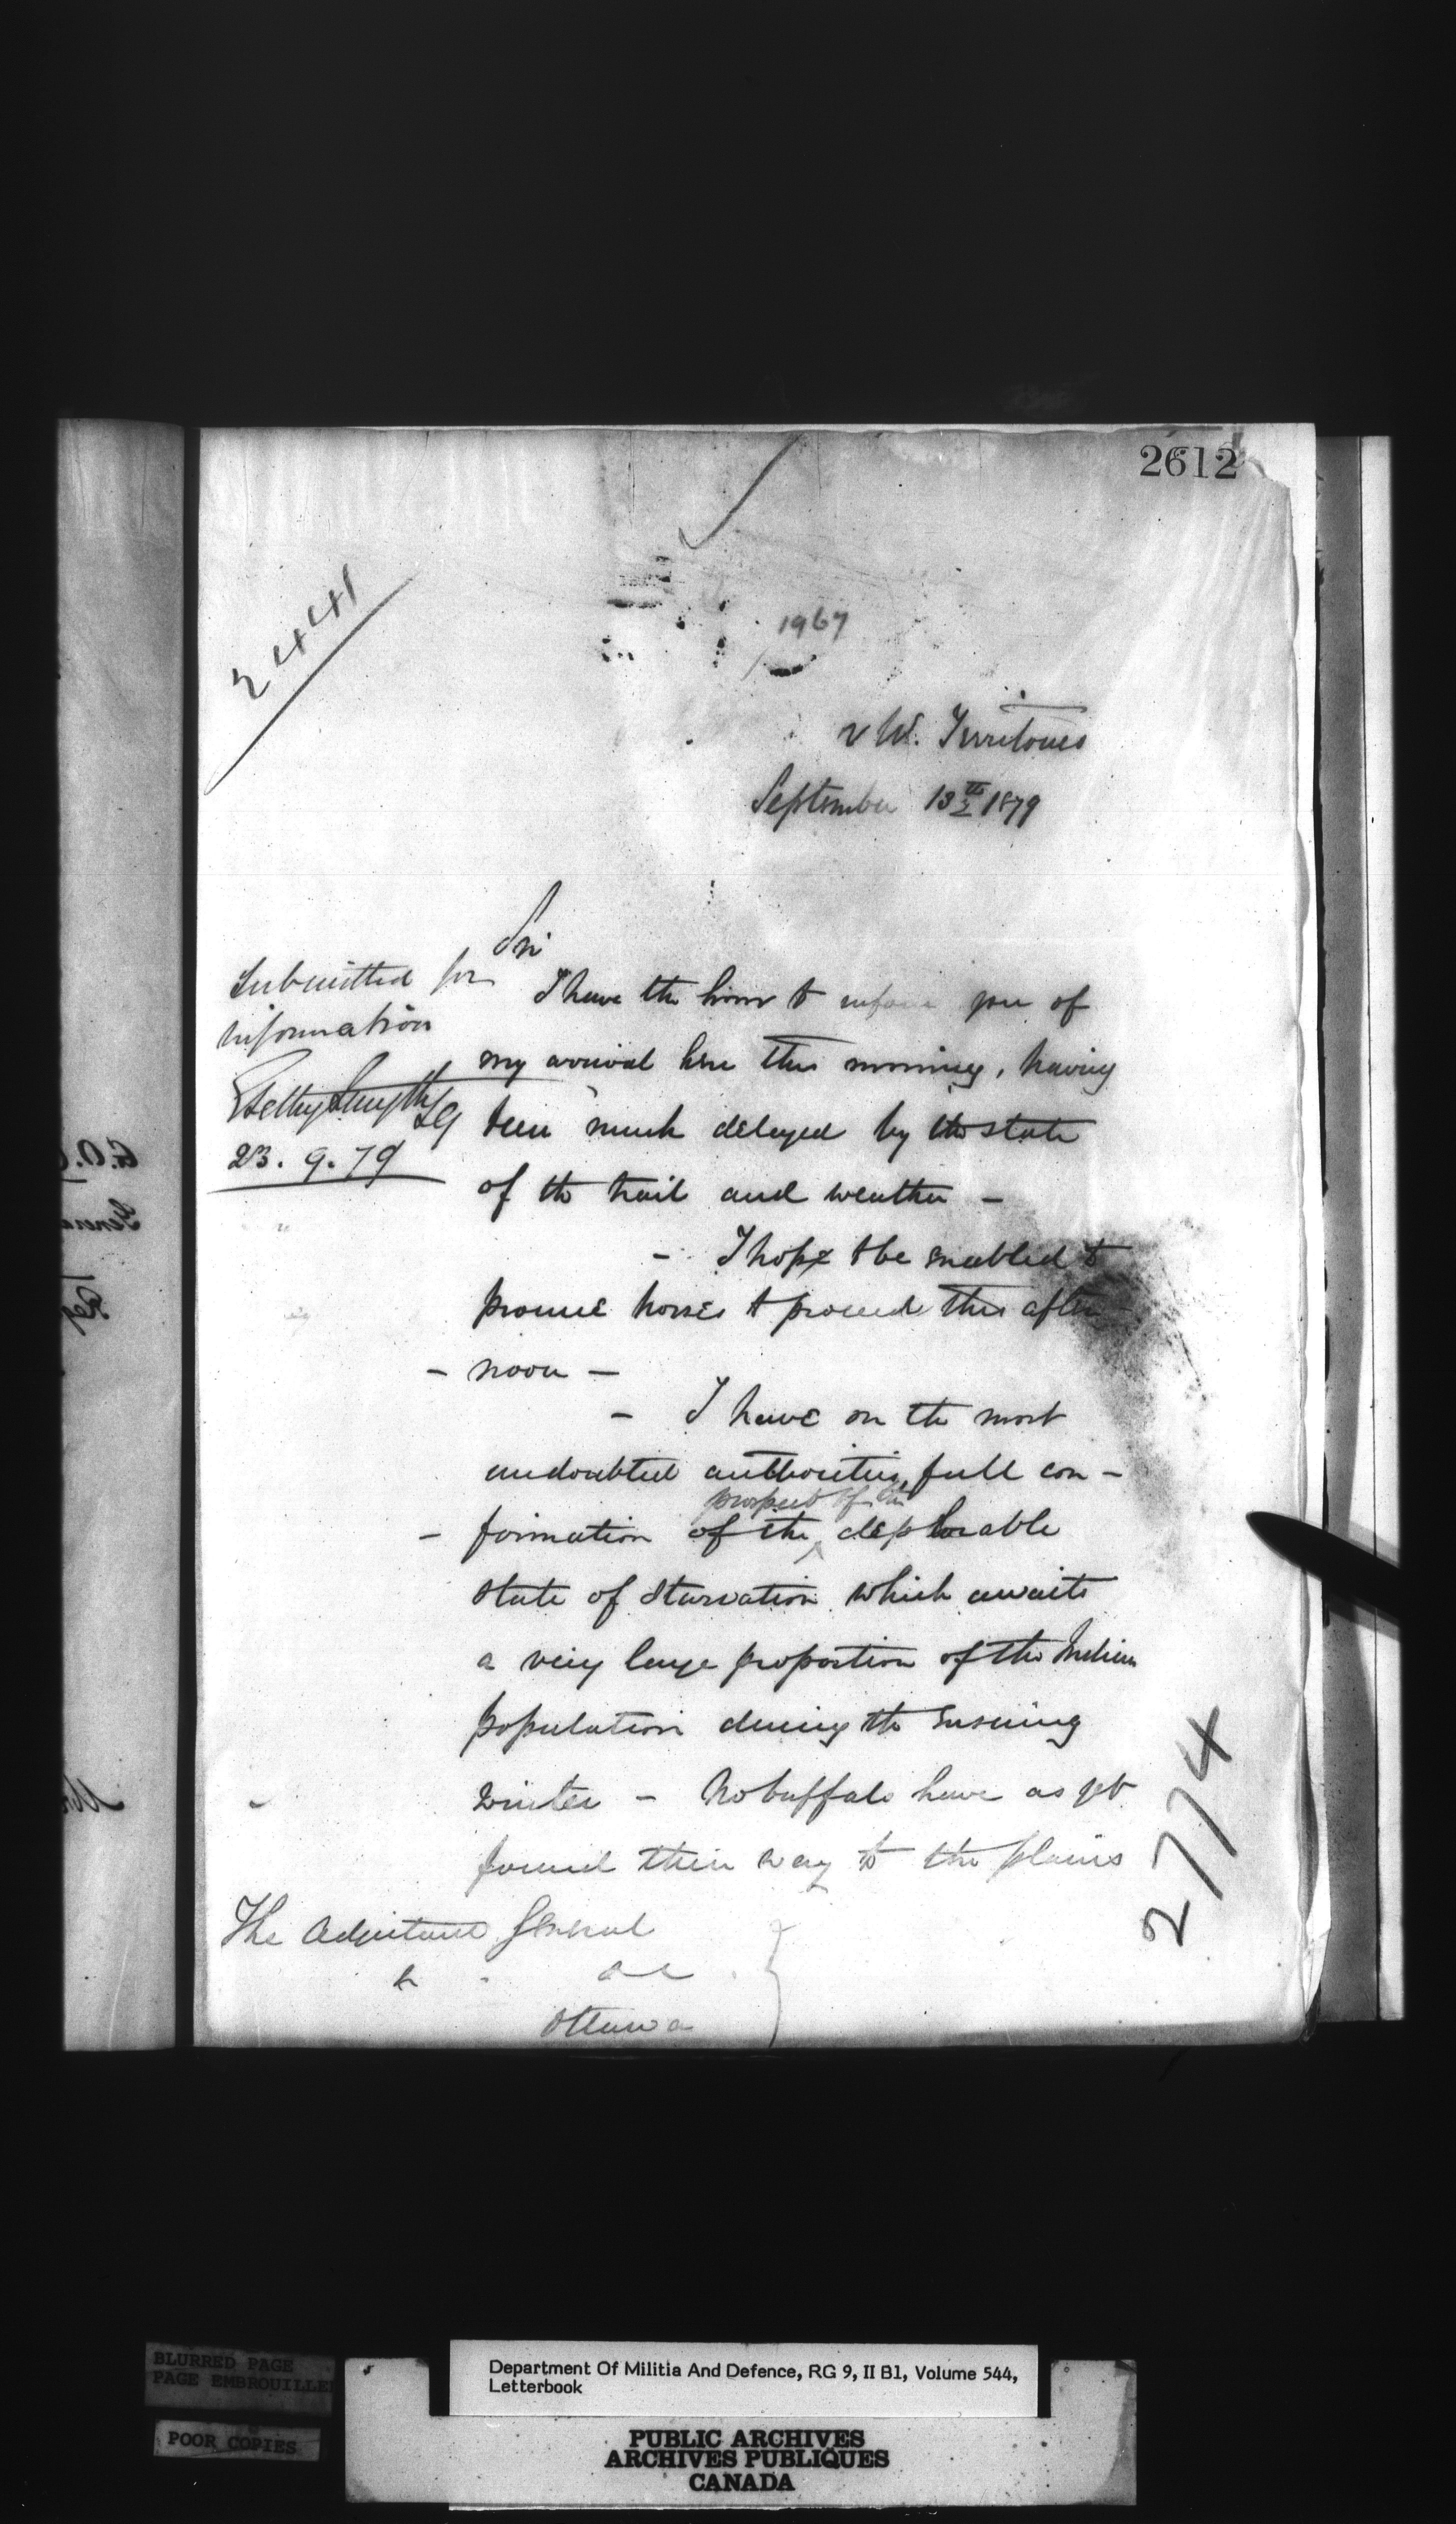 2612
2441
1967
N W. Territories
September 13th 1879
Sir
Submitted for
information
ESelby Smyth LG
23. 9. 79
I have the honor to inform you of
my arrival here this morning, having
been much delayed by the state
of the trail and weather -
- I hope to be enabled to
procure horses to proceed this after
- noon -
- I have on the most
undoubted authorities, full con -
prospect of the
- firmation of the deplorable
state of starvation which awaits
a very large proportion of the Indian
population during the ensuing
winter - No buffalo have as yet
found their way to the plains
The Adjutant General
Ottawa
2774
BLURRED PAGE
PAGE EMBROUILLEE
POOR COPIES
Department Of Militia And Defence, RG 9, II B1, Volume 544,
Letterbook
PUBLIC ARCHIVES
ARCHIVES PUBLIQUES
CANADA